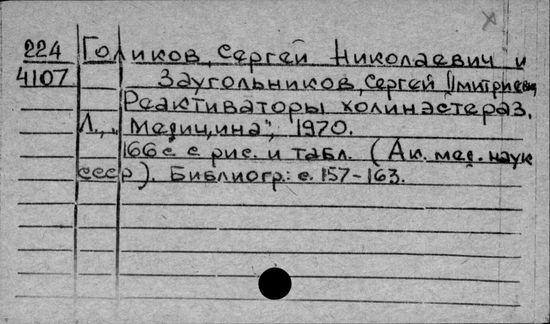 224 Голиков, Сергей Николаевич и
4107 Заугольников, Сергей Дмитриевич
Реактиваторы холинэстераз.
Л., „Медицина", 1970.
166 с. с рис. и табл. (Ак. мед. наук
СССР). Библиогр.: с. 157-163.